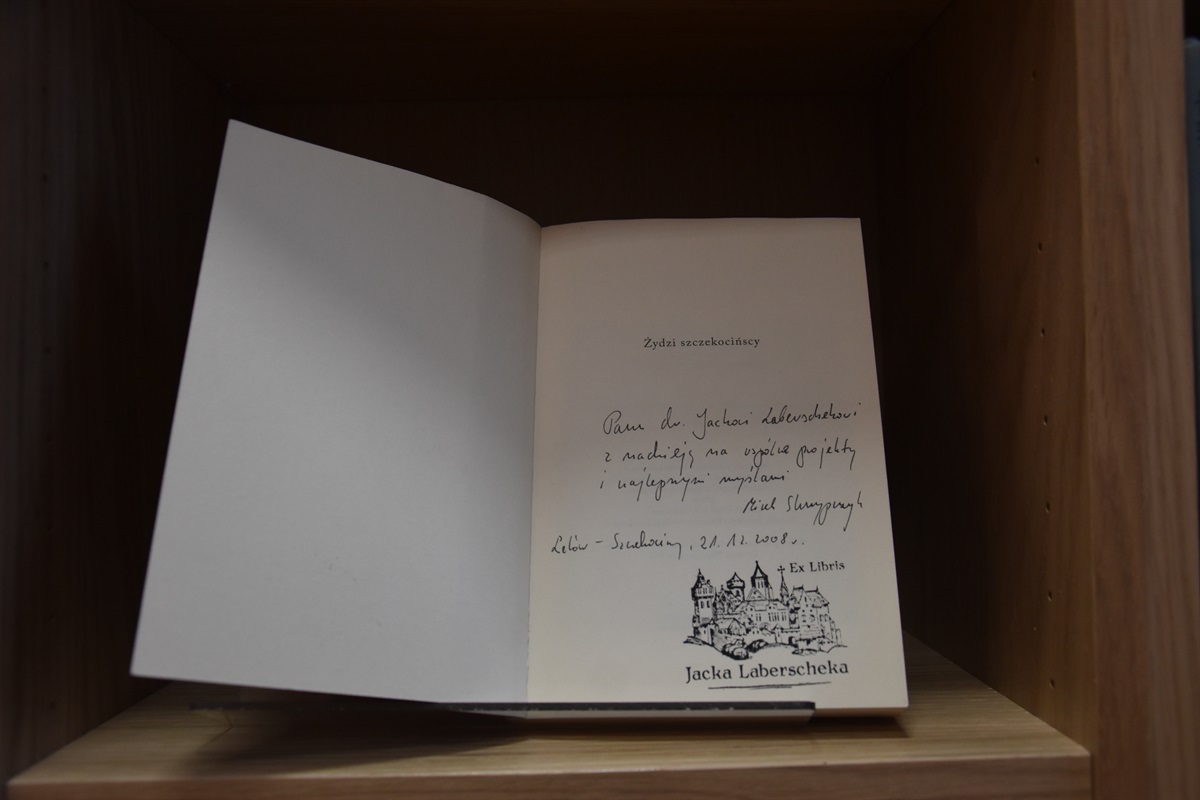 Żydzi szczekocińscy
Panu dr. Jackowi Laberschekowi
z nadzieją na wspólne projekty
i najlepszymi myślami
Mirek Skrzypczyk
Lelów - Szczekociny, 21.12.2008 r.
Ex Libris
Jacka Laberscheka